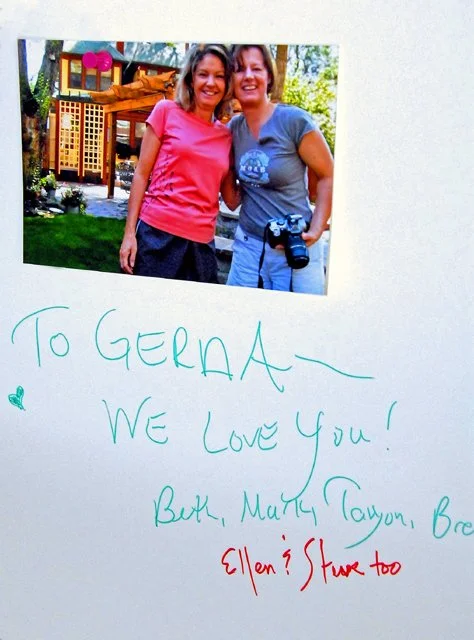 To GERDA
WE LOVE You!
Beth, Mark, Taryon, Bre
Ellen & Steve too